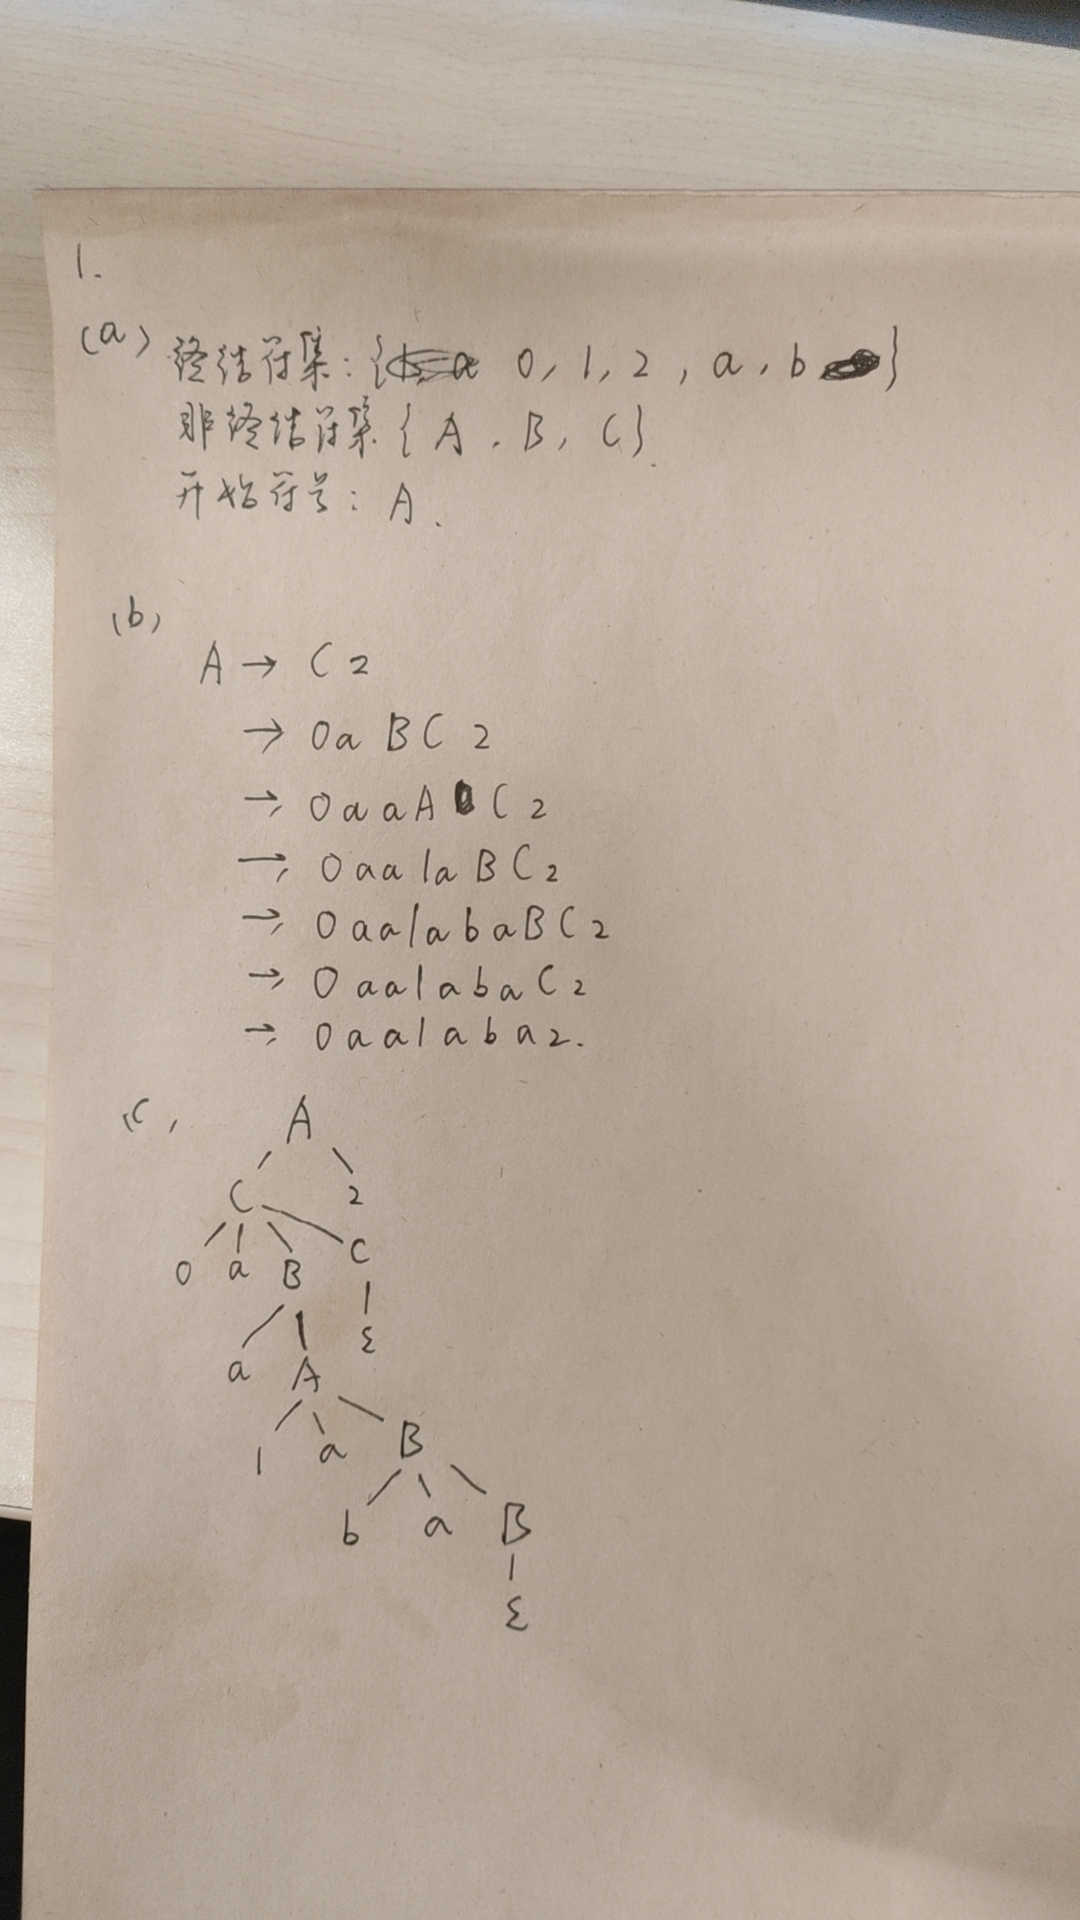 1.
(a) 终结符集:{ 0, 1, 2, a, b }
非终结符集{ A, B, C}.
开始符号: A.
(b)
A → C 2
→ 0 a B C 2
→ 0 a a A C 2
→ 0 a a 1 a B C 2
→ 0 a a 1 a b a B C 2
→ 0 a a 1 a b a C 2
→ 0 a a 1 a b a 2.
(c)
A
C 2
0 a B C
a A ε
1 a B
b a B
ε